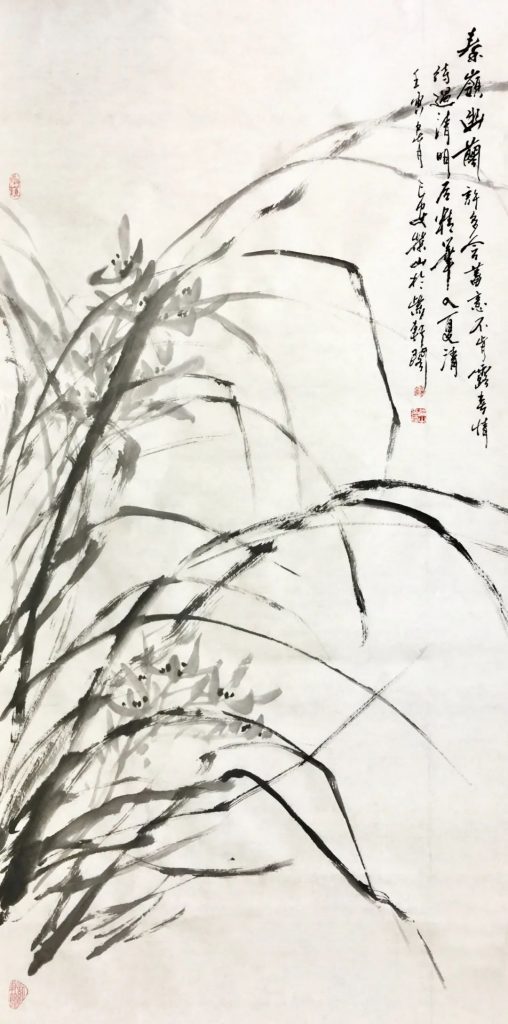 秦嶺幽蘭 許多含蓄意不肯露春情
待過清明后精華入夏清
壬寅 月 山於紫軒閣